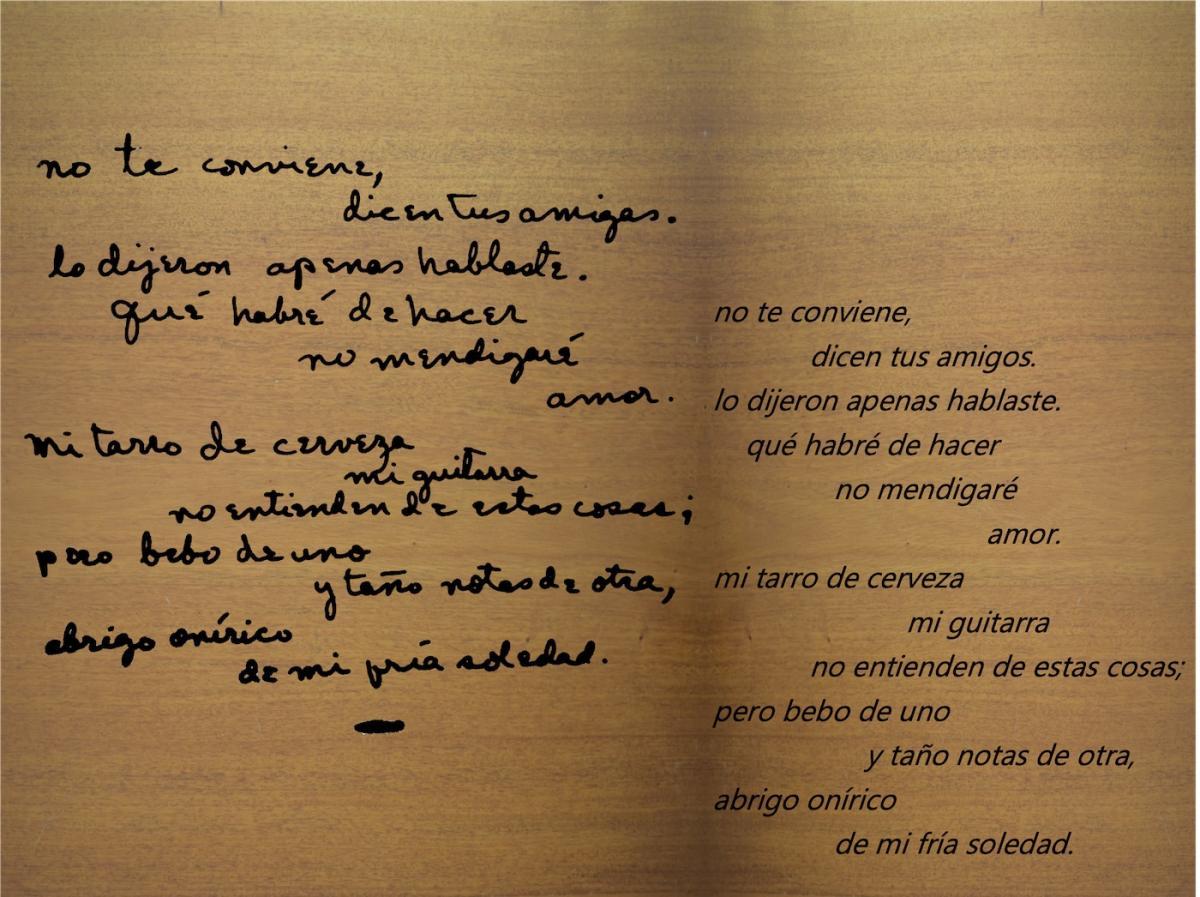 no te conviene,
dicen tus amigas.
lo dijeron apenas hablaste.
qué habré de hacer
no mendigaré
amor.
mi tarro de cerveza
mi guitarra
no entienden de estas cosas;
pero bebo de uno
y taño notas de otra,
abrigo onírico
de mi fría soledad.
no te conviene,
dicen tus amigos.
lo dijeron apenas hablaste.
qué habré de hacer
no mendigaré
amor.
mi tarro de cerveza
mi guitarra
no entienden de estas cosas;
pero bebo de uno
y taño notas de otra,
abrigo onírico
de mi fría soledad.